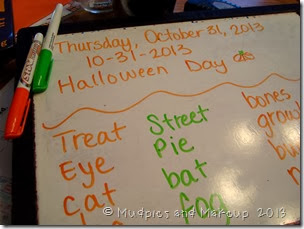 Thursday, October 31, 2013
10-31-2013
Halloween Day
Treat
Eye
Cat
Street
Pie
bat
Fog
bones
© Mudpies and Makeup 2013